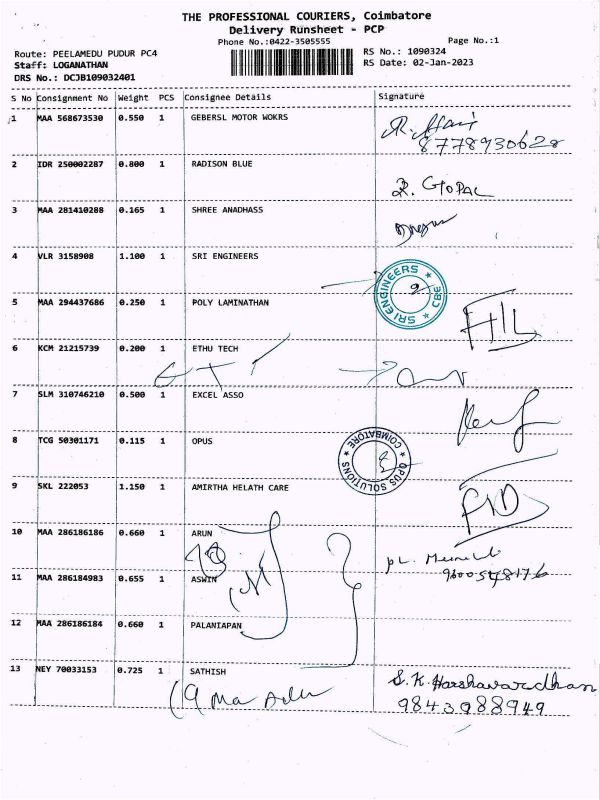 THE PROFESSIONAL COURIERS, Coimbatore
Delivery Runsheet - PCP
Phone No.:0422-3505555 Page No.:1
Route: PEELAMEDU PUDUR PC4 RS No.: 1090324
Staff: LOGANATHAN RS Date: 02-Jan-2023
DRS No.: DCJB109032401
S No Consignment No Weight PCS Consignee Details Signature
1 MAA 568673530 0.550 1 GEBERSL MOTOR WOKRS
8778930628
2 IDR 250002287 0.800 1 RADISON BLUE
R. GOPAL
3 MAA 281410288 0.165 1 SHREE ANADHASS
4 VLR 3158908 1.100 1 SRI ENGINEERS
SRI ENGINEERS ★ CBE ★
5 MAA 294437686 0.250 1 POLY LAMINATHAN
6 KCM 21215739 0.200 1 ETHU TECH
7 SLM 310746210 0.500 1 EXCEL ASSO
8 TCG 50301171 0.115 1 OPUS
OPUS SOLUTIONS ★ COIMBATORE ★
9 SKL 222053 1.150 1 AMIRTHA HELATH CARE
10 MAA 286186186 0.660 1 ARUN
11 MAA 286184983 0.655 1 ASWIN
12 MAA 286186184 0.660 1 PALANIAPAN
13 NEY 70033153 0.725 1 SATHISH
S.K. Harshavardhan
9843988949